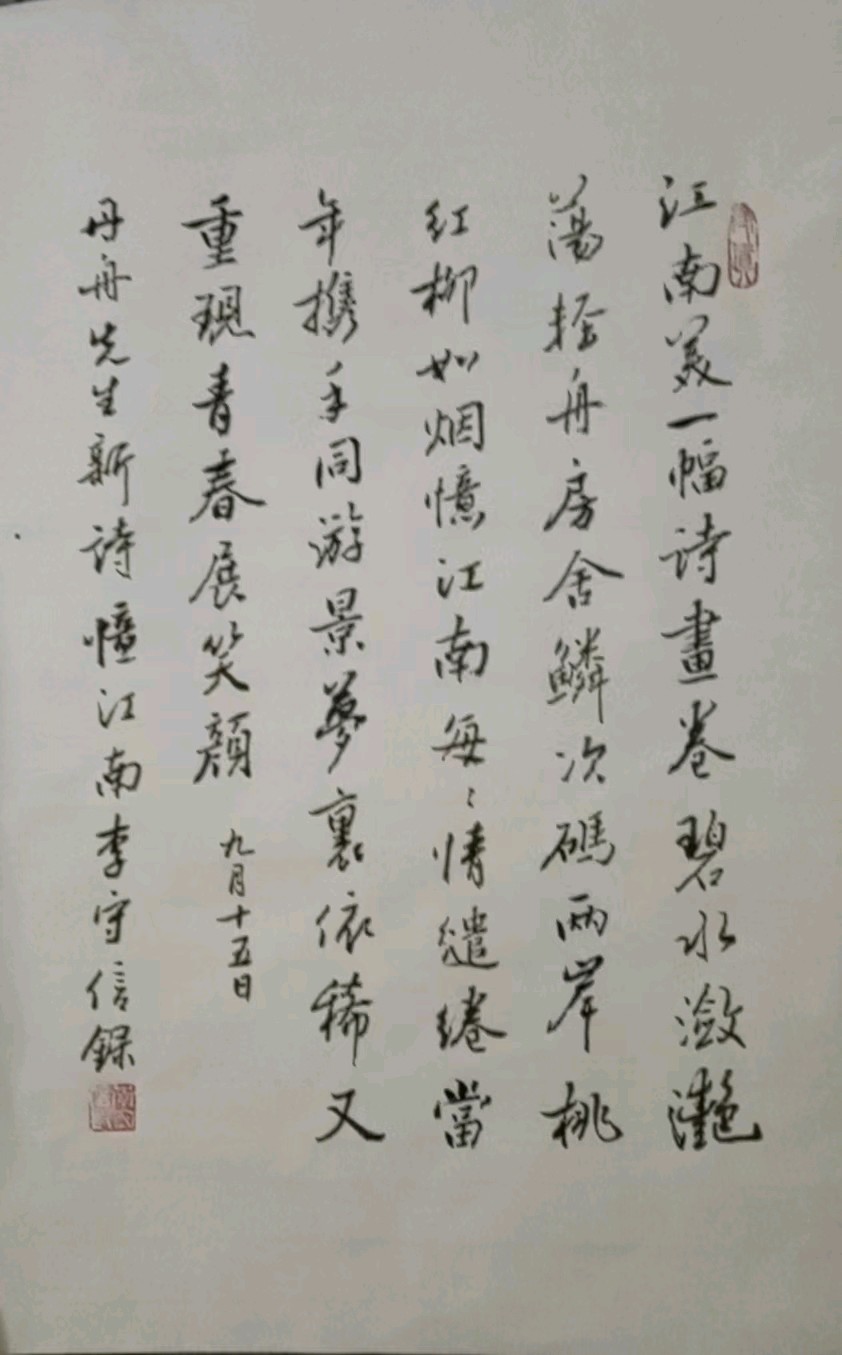 江南美一幅詩畫卷碧水瀲灩
蕩輕舟房舍鱗次碼兩岸桃
紅柳如烟憶江南每〻情繾綣當
年携手同游景夢裏依稀又
重現青春展笑顏
九月十五日
丹舟先生新詩憶江南李守信錄